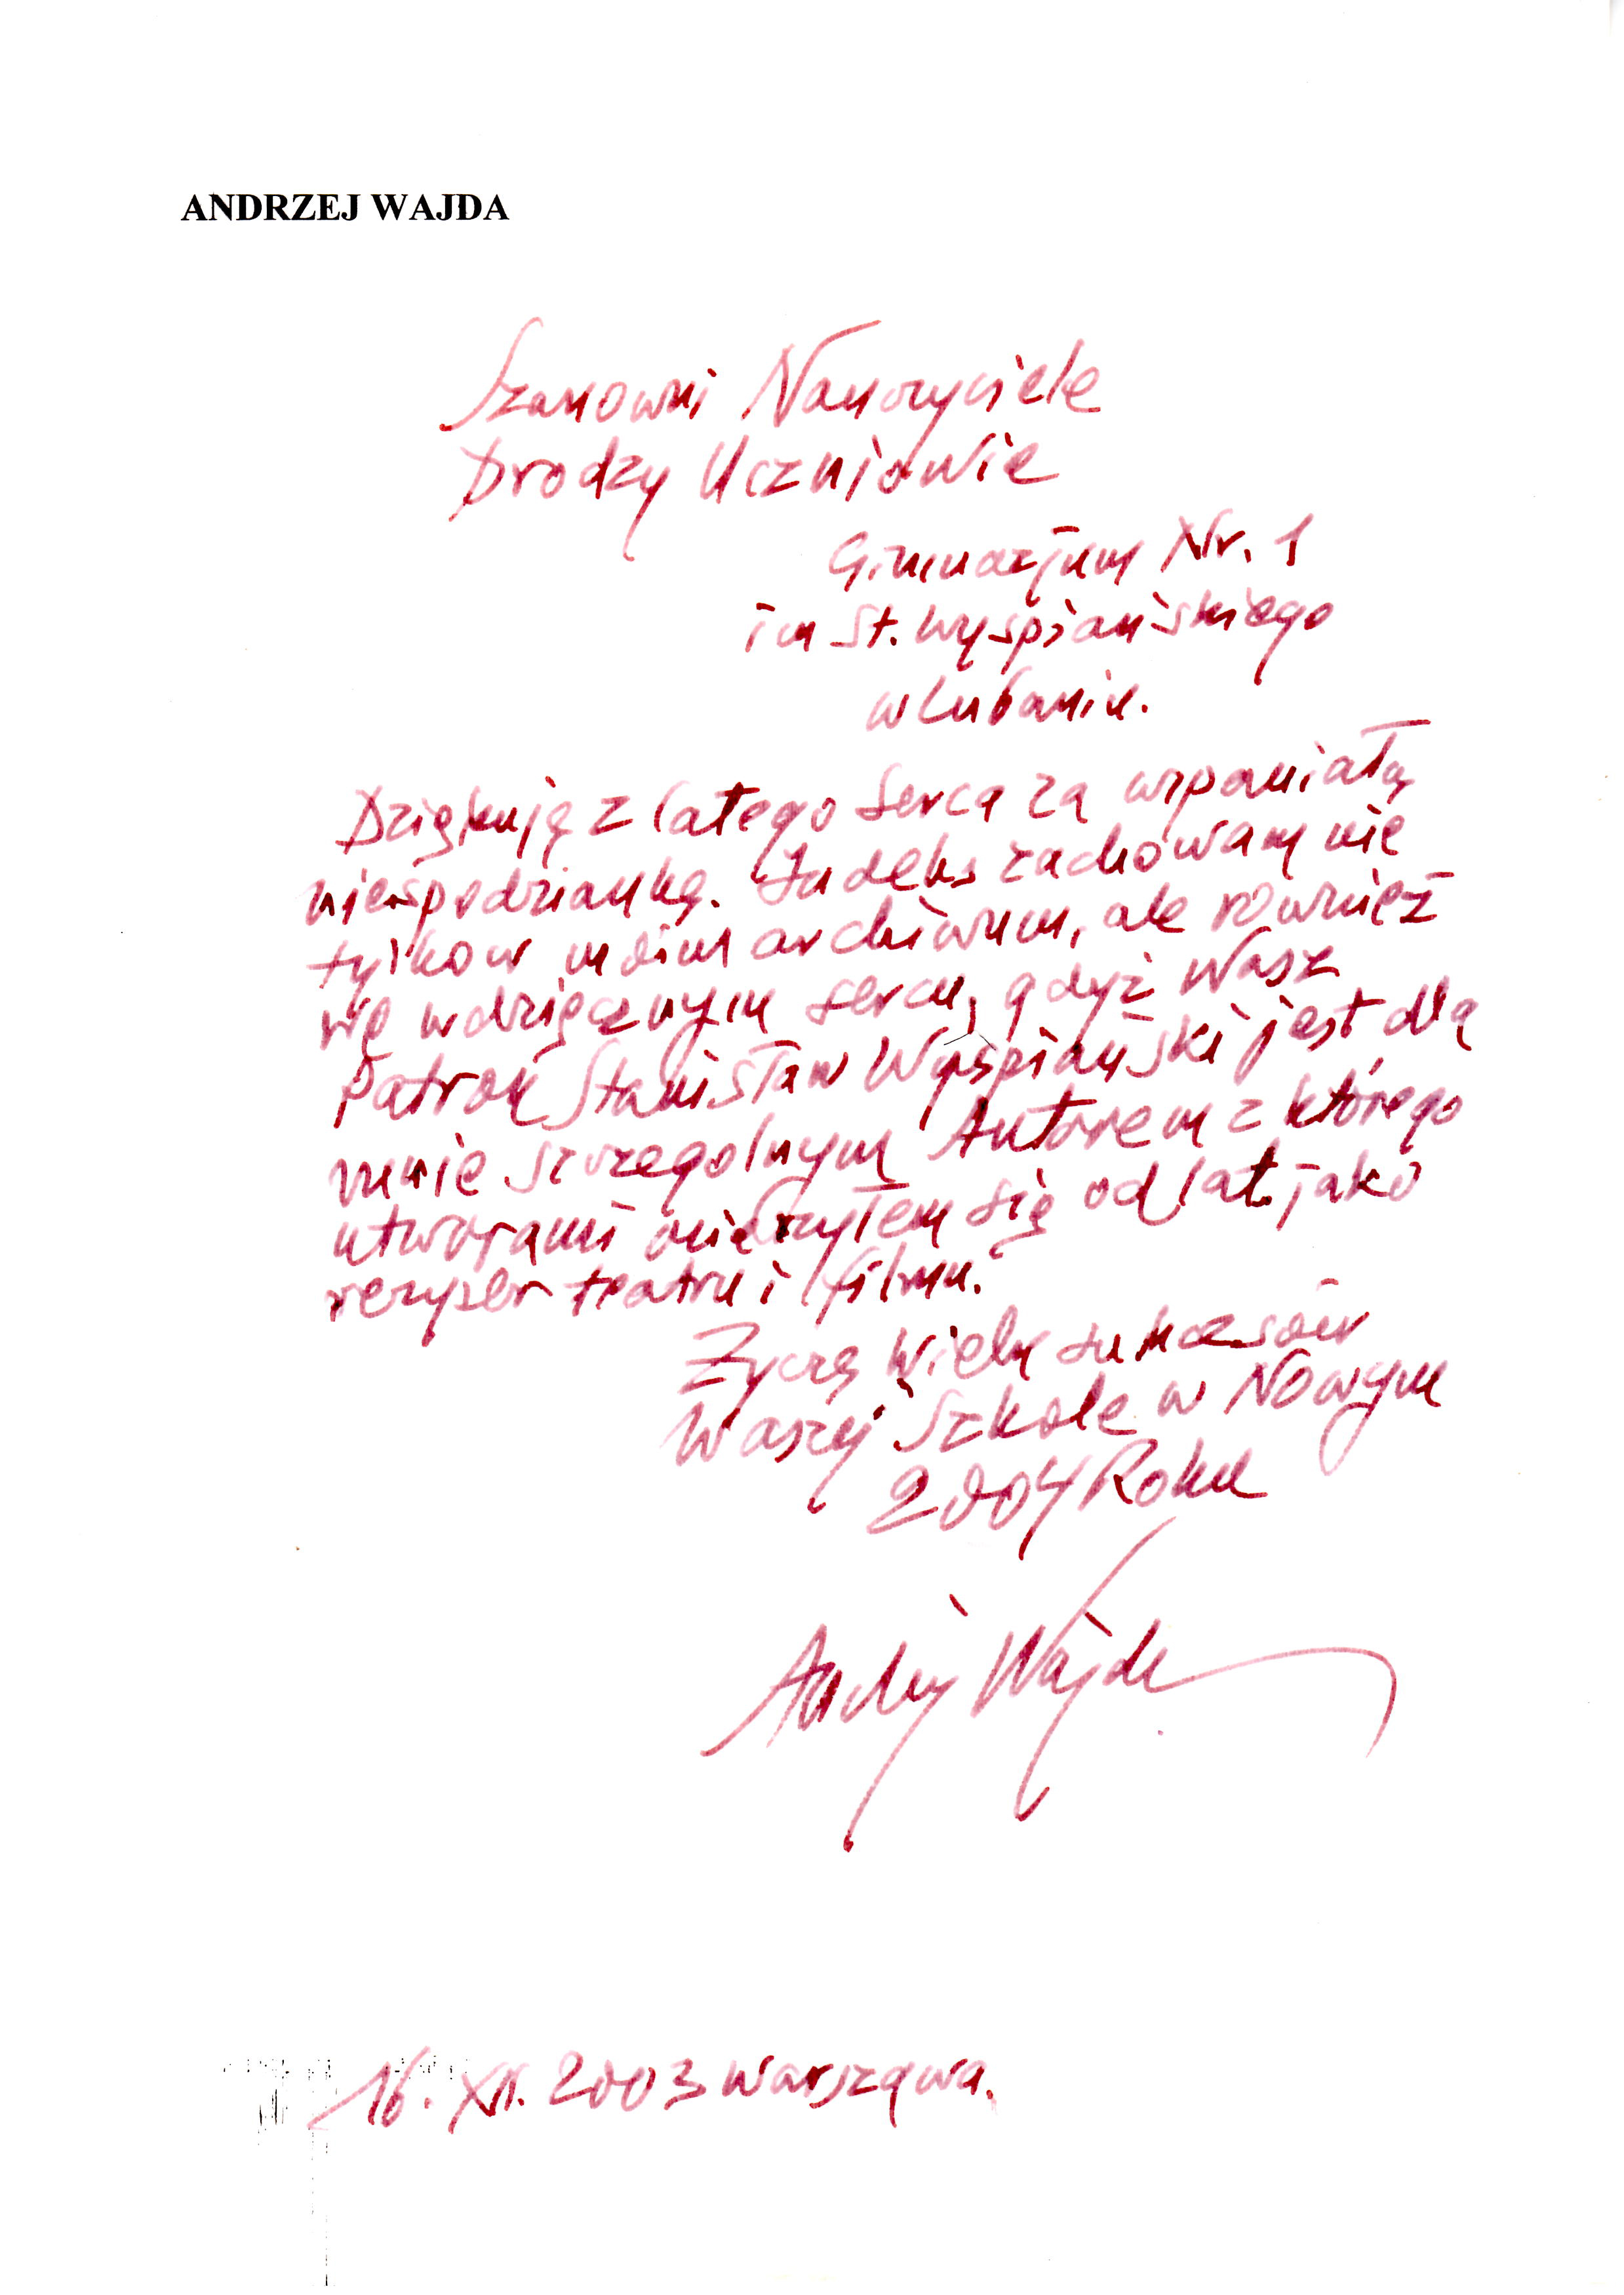 ANDRZEJ WAJDA
Szanowni Nauczyciele
Drodzy Uczniowie
Gimnazjum Nr. 1
im St. Wyspiańskiego
w Lubaniu.
Dziękuję z całego serca za wspaniałą
niespodziankę. Indeks zachowam nie
tylko w moim archiwum, ale również
we wdzięcznym sercu, gdyż Wasz
Patron Stanisław Wyspiański jest dla
mnie szczególnym Autorem z którego
utworami mierzyłem się od lat jako
reżyser teatru i filmu.
Życzę Wielu sukcesów
Waszej Szkole w Nowym
2004 Roku
Andrzej Wajda
16. XII. 2003 Warszawa.